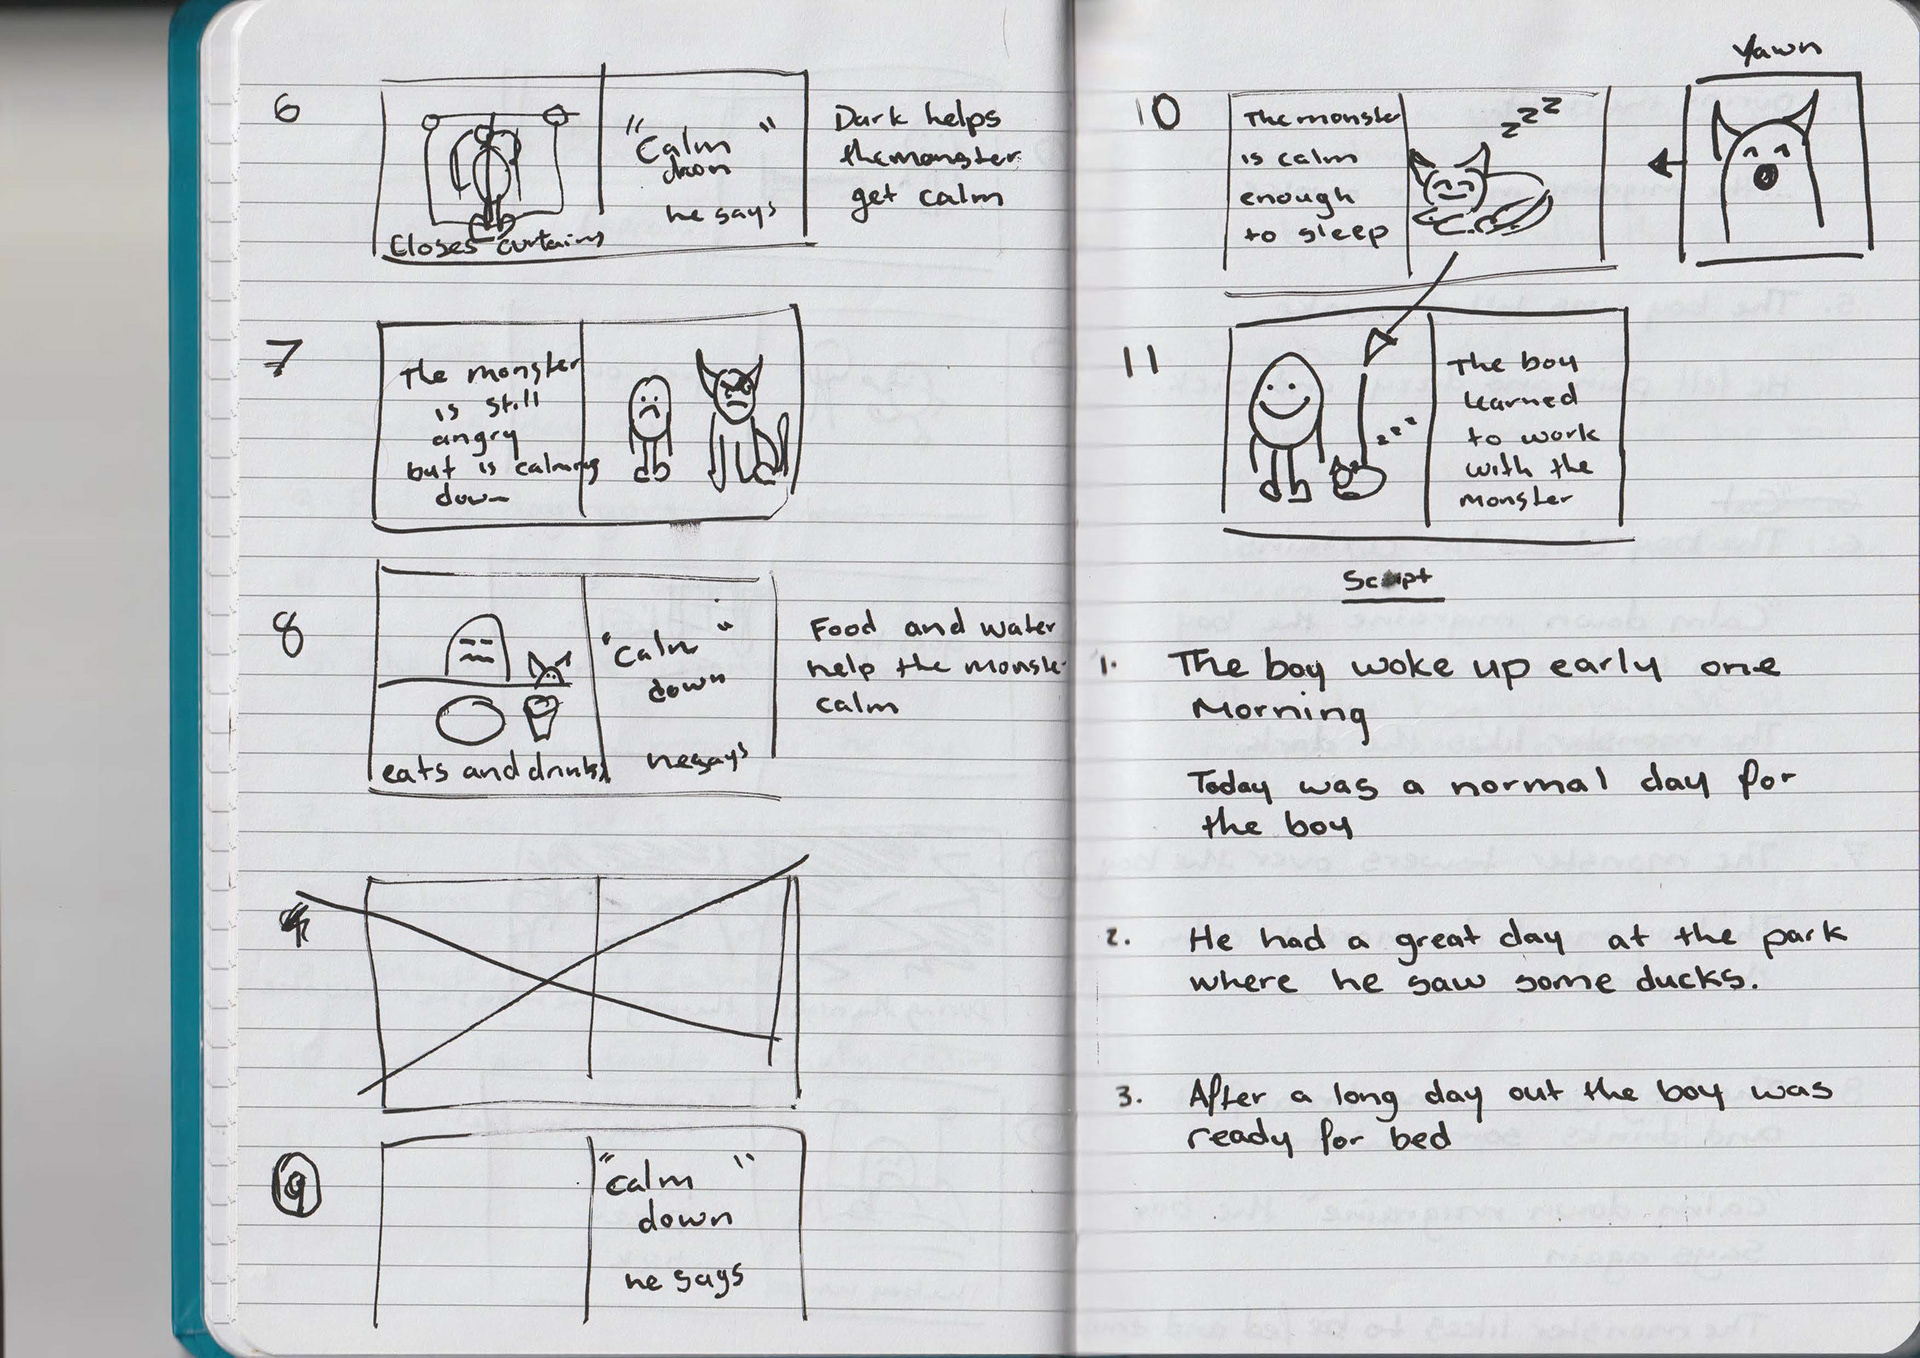 6
Closes curtains
"Calm"
down
he says
Dark helps
the monster
get calm
7
The monster
is still
angry
but is calming
down
8
eats and drinks
"calm"
down
he says
Food and water
help the monste
calm
9
"calm"
down
he says
10
The monster
is calm
enough
to sleep
zzz
Yawn
11
zzz
The boy
learned
to work
with the
monster
Script
1. The boy woke up early one
Morning
Today was a normal day for
the boy
2. He had a great day at the park
where he saw some ducks.
3. After a long day out the boy was
ready for bed